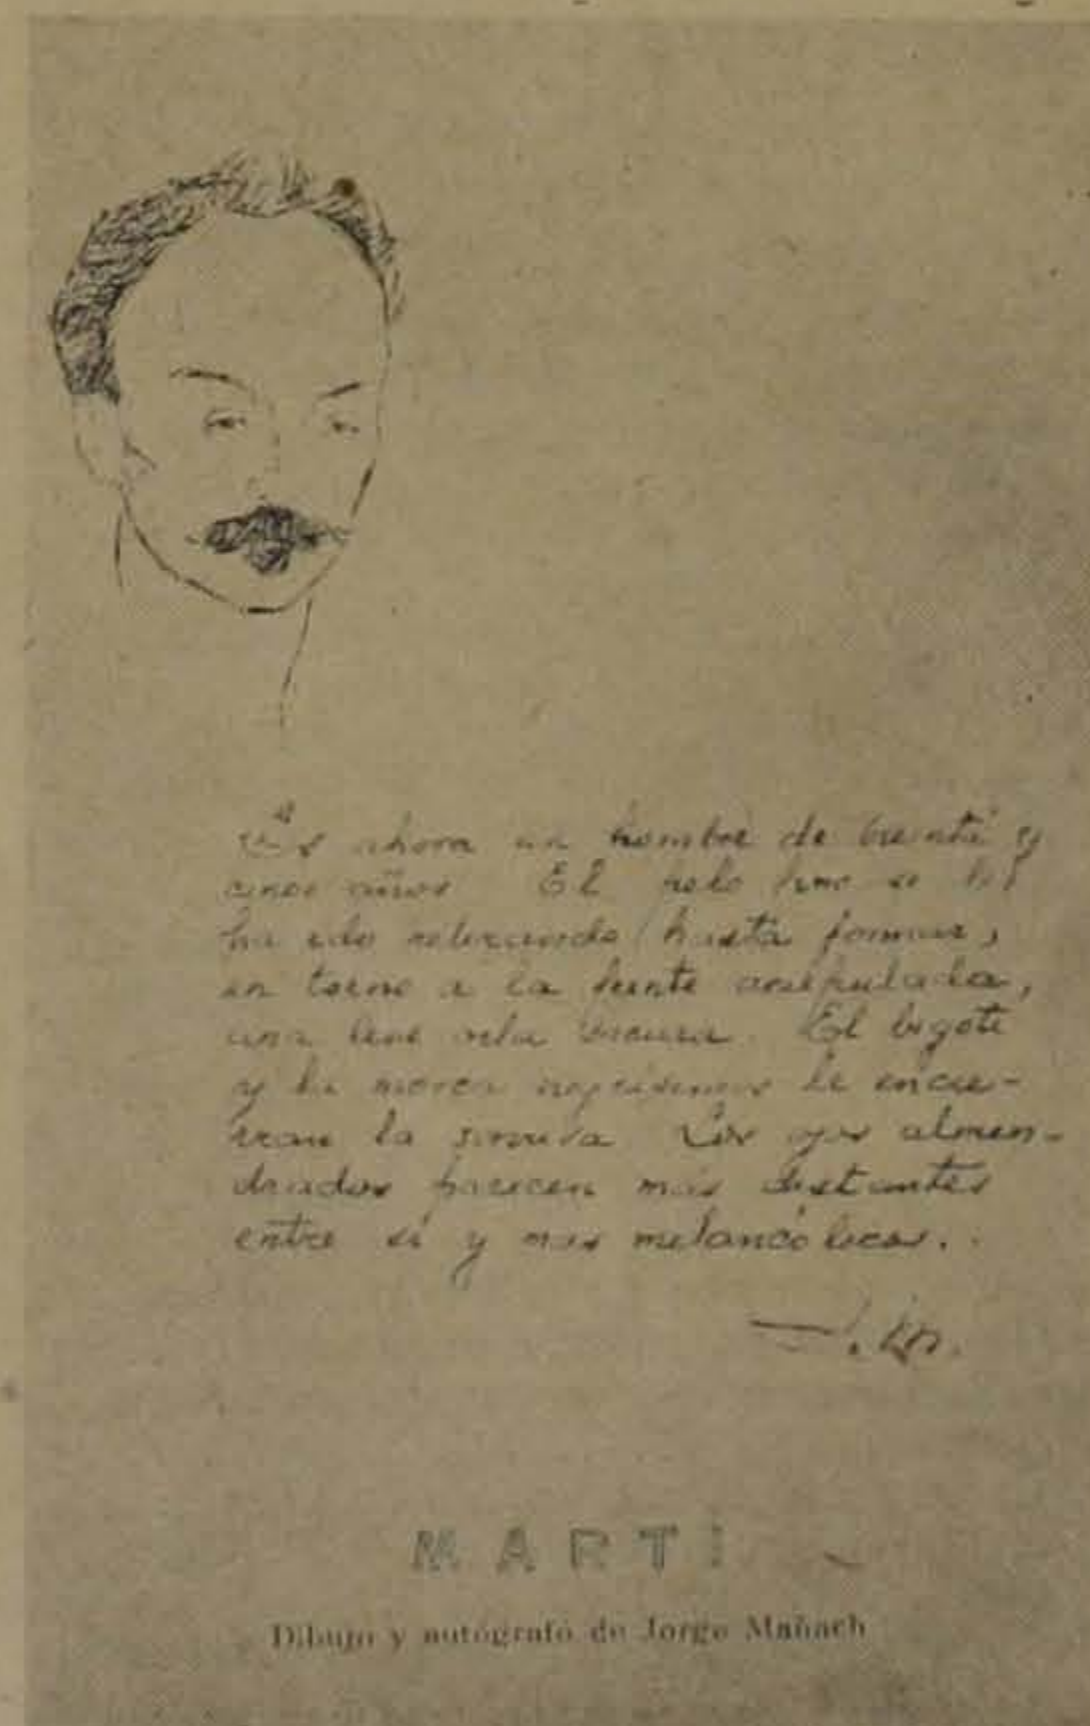 Es ahora un hombre de treinta y
cinco años El pelo fino se le
ha ido retirando hasta formar,
en torno a la frente
una leve orla oscura. El bigote
y la mosca negrísimos le encie-
rran la sonrisa Los ojos almen-
drados parecen más distantes
entre sí y más melancólicos..
J. M.
MARTÍ
Dibujo y autógrafo de Jorge Mañach